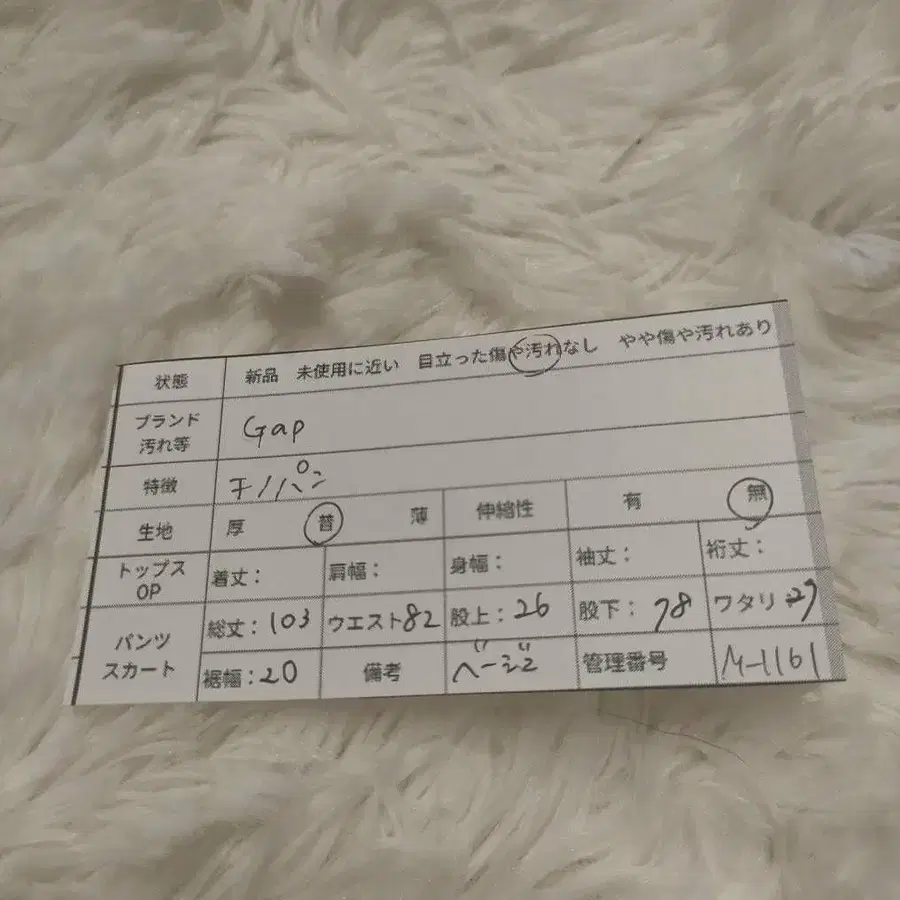 状態 新品 未使用に近い 目立った傷や汚れなし やや傷や汚れあり
ブランド 汚れ等 Gap
特徴 チノパン
生地 厚 普 薄 伸縮性 有 無
トップス OP 着丈: 肩幅: 身幅: 袖丈: 裄丈:
パンツ スカート 総丈:103 ウエスト82 股上:26 股下:78 ワタリ:27
裾幅:20 備考 ベージュ 管理番号 M-1161